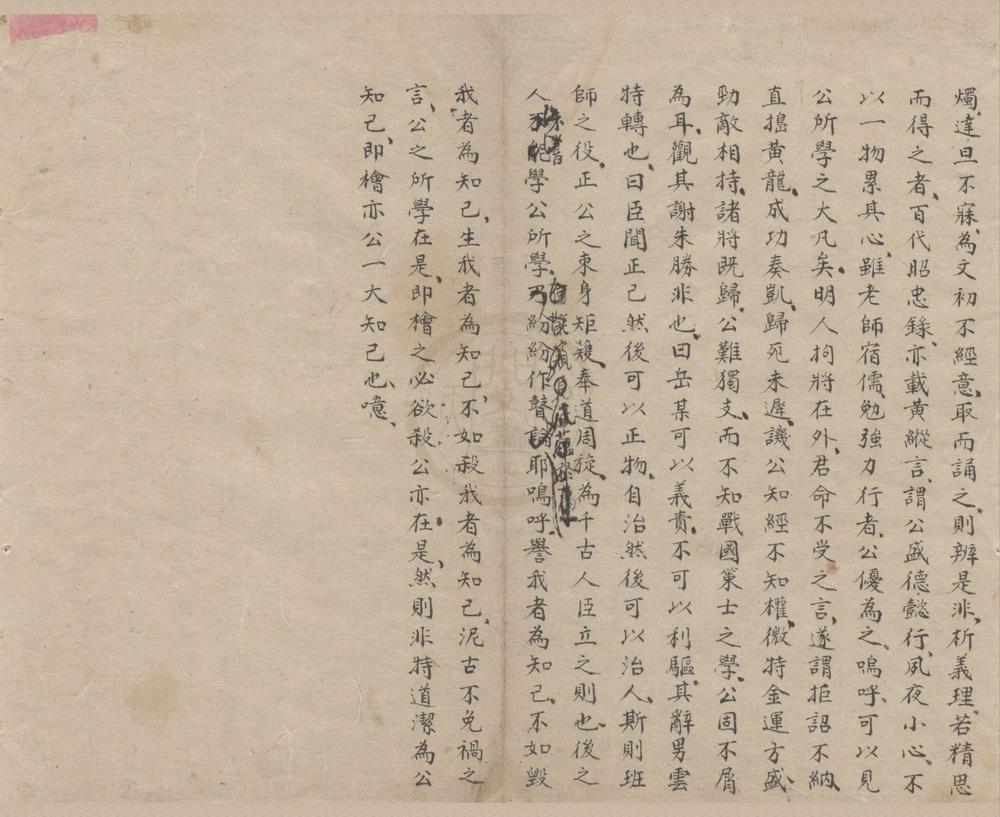 燭、達旦不寐、為文初不經意、取而誦之、則辨是非、析義理、若精思
而得之者、百代昭忠錄、亦載黃縱言、謂公盛德懿行、夙夜小心、不
以一物累其心、雖老師宿儒、勉強力行者、公優為之、嗚呼、可以見
公所學之大凡矣、明人拘將在外、君命不受之言、遂謂拒詔不納、
直搗黃龍、成功奏凱、歸死未遲、譏公知經不知權、微特金運方盛、
勁敵相持、諸將既歸、公難獨支、而不知戰國策士之學、公固不屑
為耳、觀其謝朱勝非也、曰岳某可以義責、不可以利驅、其辭男雲
特轉也、曰臣聞正己然後可以正物、自治然後可以治人、斯則班
師之役、正公之束身矩矱、奉道周旋、為千古人臣立之則也、後之
人學公所學、乃紛紛作瞽論耶、嗚呼、譽我者為知己、不如毀
我者為知己、生我者為知己、不如殺我者為知己、泥古不免禍之
言、公之所學在是、即檜之必欲殺公亦在是、然則非特道潔為公
知己、即檜亦公一大知己也、噫、